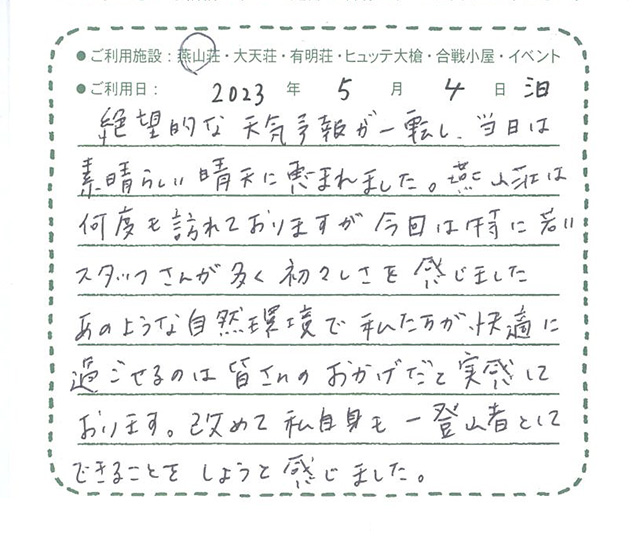 ●ご利用施設：燕山荘・大天荘・有明荘・ヒュッテ大槍・合戦小屋・イベント
●ご利用日： 2023 年 5 月 4 日 泊
絶望的な天気予報が一転し、当日は
素晴らしい晴天に恵まれました。燕山荘は
何度も訪れておりますが今回は特に若い
スタッフさんが多く初々しさを感じました
あのような自然環境で私た方が、快適に
過ごせるのは皆さんのおかげだと実感して
おります。改めて私自身も一登山者として
できることをしようと感じました。